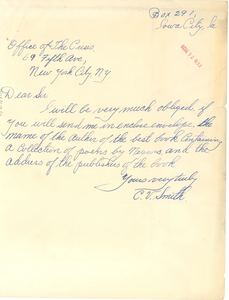 Box 291,
Iowa City, Ia
Office of The Crisis,
69 Fifth Ave,
New York City NY
Dear Sir
I will be very much obliged if
you will send me in enclose envelope the
name of the Author of the best book containing
a collection of poems by Negroes, and the
address of the publishers of the book
Yours very truly
C. V. Smith